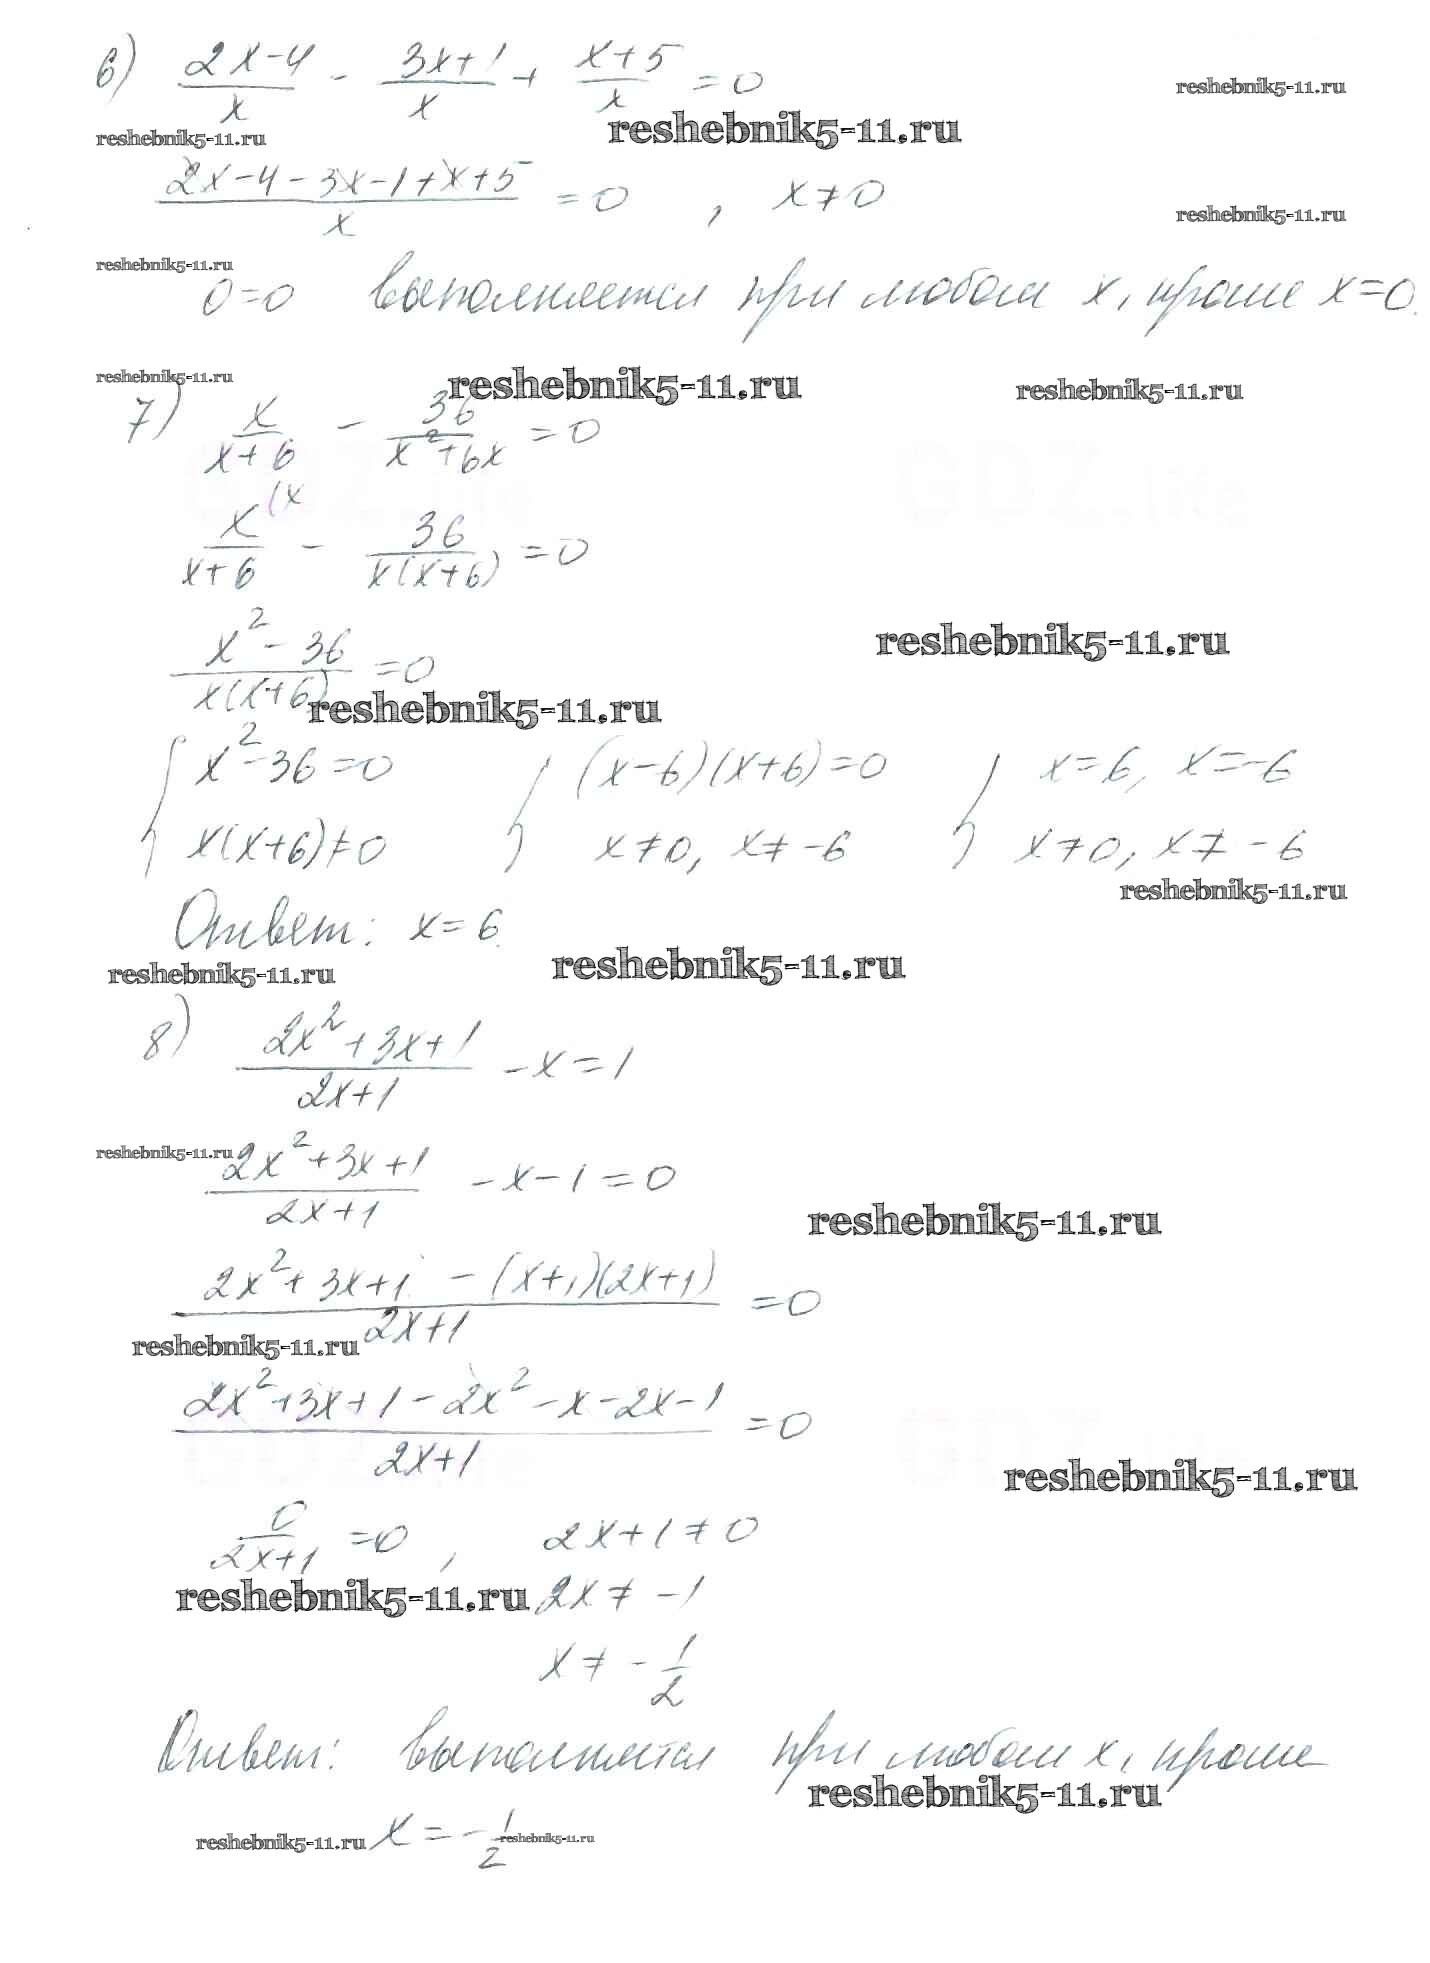 6) (2x-4)/x - (3x+1)/x + (x+5)/x = 0
reshebnik5-11.ru
reshebnik5-11.ru reshebnik5-11.ru
(2x-4-3x-1+x+5)/x = 0 , x≠0
reshebnik5-11.ru
reshebnik5-11.ru
0=0 выполняется при любом x, кроме x=0.
reshebnik5-11.ru reshebnik5-11.ru reshebnik5-11.ru
7) x/(x+6) - 36/(x²+6x) = 0
GDZ.life GDZ.life
x/(x+6) (x - 36/(x(x+6)) = 0
reshebnik5-11.ru
(x²-36)/(x(x+6)) = 0
reshebnik5-11.ru
{ x²-36=0 { (x-6)(x+6)=0 { x=6, x=-6
x(x+6)≠0 x≠0, x≠-6 x≠0, x≠-6
reshebnik5-11.ru
Ответ: x=6.
reshebnik5-11.ru reshebnik5-11.ru
8) (2x²+3x+1)/(2x+1) - x = 1
reshebnik5-11.ru
(2x²+3x+1)/(2x+1) - x - 1 = 0
reshebnik5-11.ru
(2x²+3x+1 - (x+1)(2x+1))/(2x+1) = 0
reshebnik5-11.ru
(2x²+3x+1-2x²-x-2x-1)/(2x+1) = 0
GDZ.life GDZ.life
reshebnik5-11.ru
0/(2x+1) = 0 , 2x+1≠0
reshebnik5-11.ru 2x≠-1
x≠-1/2
Ответ: выполняется при любом x, кроме
reshebnik5-11.ru
reshebnik5-11.ru x=-1/2 reshebnik5-11.ru